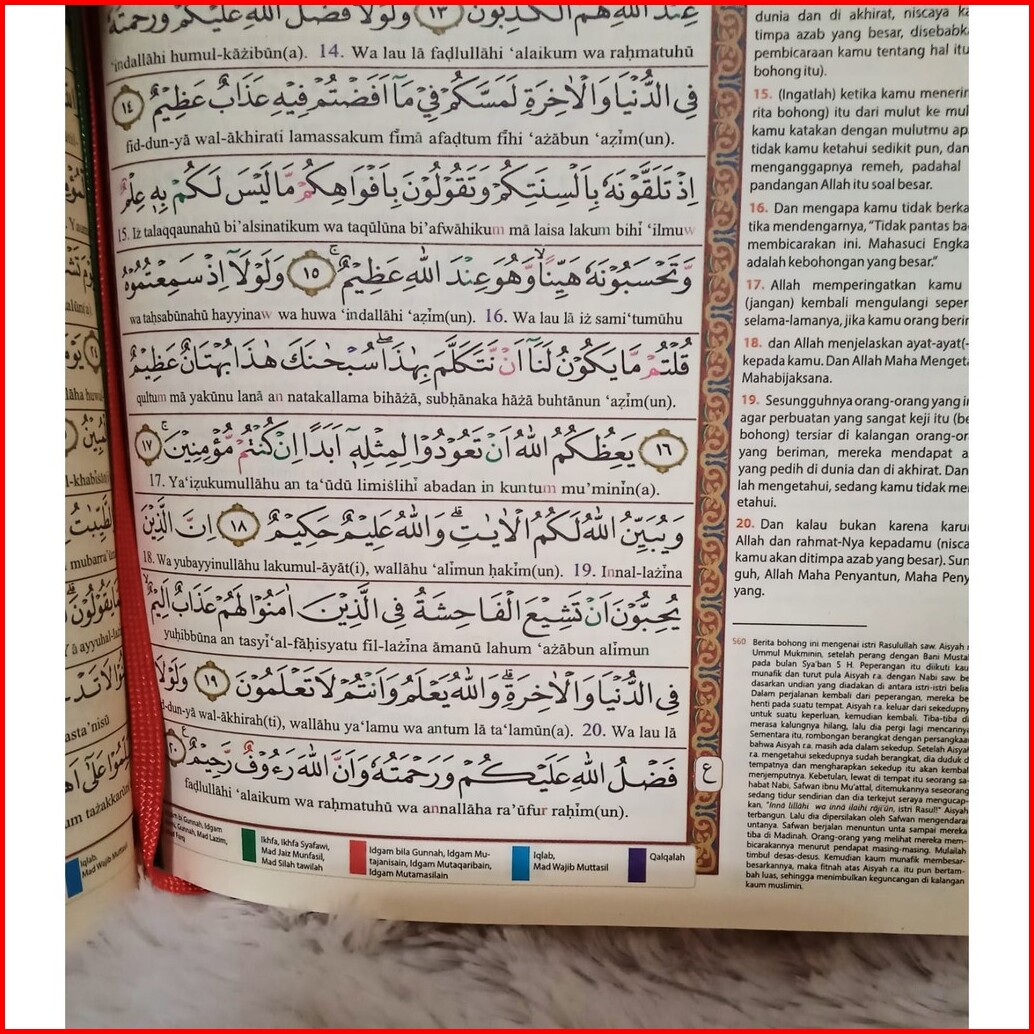 عِنْدَ اللّٰهِ هُمُ الْكٰذِبُوْنَ ١٣ وَلَوْلَا فَضْلُ اللّٰهِ عَلَيْكُمْ وَرَحْمَتُهٗ
'indallāhi humul-kāżibūn(a). 14. Wa lau lā faḍlullāhi 'alaikum wa raḥmatuhū
فِى الدُّنْيَا وَالْاٰخِرَةِ لَمَسَّكُمْ فِيْ مَآ اَفَضْتُمْ فِيْهِ عَذَابٌ عَظِيْمٌ ١٤
fid-dun-yā wal-ākhirati lamassakum fīmā afaḍtum fīhi 'ażābun 'aẓīm(un).
اِذْ تَلَقَّوْنَهٗ بِاَلْسِنَتِكُمْ وَتَقُوْلُوْنَ بِاَفْوَاهِكُمْ مَّا لَيْسَ لَكُمْ بِهٖ عِلْمٌ
15. Iż talaqqaunahū bi'alsinatikum wa taqūlūna bi'afwāhikum mā laisa lakum bihī 'ilmuw
وَّتَحْسَبُوْنَهٗ هَيِّنًاۙ وَّهُوَ عِنْدَ اللّٰهِ عَظِيْمٌ ۚ ١٥ وَلَوْلَآ اِذْ سَمِعْتُمُوْهُ
wa taḥsabūnahū hayyinaw wa huwa 'indallāhi 'aẓīm(un). 16. Wa lau lā iż sami'tumūhu
قُلْتُمْ مَّا يَكُوْنُ لَنَآ اَنْ نَّتَكَلَّمَ بِهٰذَاۖ سُبْحٰنَكَ هٰذَا بُهْتَانٌ عَظِيْمٌ
qultum mā yakūnu lanā an natakallama bihāżā, subḥānaka hāżā buhtānun 'aẓīm(un).
١٦ يَعِظُكُمُ اللّٰهُ اَنْ تَعُوْدُوْا لِمِثْلِهٖٓ اَبَدًا اِنْ كُنْتُمْ مُّؤْمِنِيْنَ ۚ ١٧
17. Ya'iẓukumullāhu an ta'ūdū limiṡlihī abadan in kuntum mu'minīn(a).
وَيُبَيِّنُ اللّٰهُ لَكُمُ الْاٰيٰتِۗ وَاللّٰهُ عَلِيْمٌ حَكِيْمٌ ١٨ اِنَّ الَّذِيْنَ
18. Wa yubayyinullāhu lakumul-āyāt(i), wallāhu 'alīmun ḥakīm(un). 19. Innal-lażīna
يُحِبُّوْنَ اَنْ تَشِيْعَ الْفَاحِشَةُ فِى الَّذِيْنَ اٰمَنُوْا لَهُمْ عَذَابٌ اَلِيْمٌۙ
yuḥibbūna an tasyī'al-fāḥisyatu fil-lażīna āmanū lahum 'ażābun alīmun
فِى الدُّنْيَا وَالْاٰخِرَةِۗ وَاللّٰهُ يَعْلَمُ وَاَنْتُمْ لَا تَعْلَمُوْنَ ١٩ وَلَوْلَا
-dun-yā wal-ākhirah(ti), wallāhu ya'lamu wa antum lā ta'lamūn(a). 20. Wa lau lā
فَضْلُ اللّٰهِ عَلَيْكُمْ وَرَحْمَتُهٗ وَاَنَّ اللّٰهَ رَءُوْفٌ رَّحِيْمٌ ࣖ ٢٠
faḍlullāhi 'alaikum wa raḥmatuhū wa annallāha ra'ūfur raḥīm(un).
ع
Gunnah, Idgam
Gunnah, Mad Lazim,
Farq
Ikhfa, Ikhfa Syafawi,
Mad Jaiz Munfasil,
Mad Silah tawilah
Idgam bila Gunnah, Idgam Mu-
tajanisain, Idgam Mutaqaribain,
Idgam Mutamasilain
Iqlab,
Mad Wajib Muttasil
Qalqalah
dunia dan di akhirat, niscaya
timpa azab yang besar, disebabk
pembicaraan kamu tentang hal itu
bohong itu).
15. (Ingatlah) ketika kamu menerim
rita bohong) itu dari mulut ke mul
kamu katakan dengan mulutmu ap
tidak kamu ketahui sedikit pun, dan
menganggapnya remeh, padahal
pandangan Allah itu soal besar.
16. Dan mengapa kamu tidak berka
tika mendengarnya, "Tidak pantas ba
membicarakan ini. Mahasuci Engka
adalah kebohongan yang besar."
17. Allah memperingatkan kamu
(jangan) kembali mengulangi seper
selama-lamanya, jika kamu orang berim
18. dan Allah menjelaskan ayat-ayat(-
kepada kamu. Dan Allah Maha Menget
Mahabijaksana.
19. Sesungguhnya orang-orang yang i
agar perbuatan yang sangat keji itu (be
bohong) tersiar di kalangan orang-or
yang beriman, mereka mendapat a
yang pedih di dunia dan di akhirat. Dan
lah mengetahui, sedang kamu tidak me
etahui.
20. Dan kalau bukan karena karu
Allah dan rahmat-Nya kepadamu (nisca
kamu akan ditimpa azab yang besar). Sun
guh, Allah Maha Penyantun, Maha Peny
yang.
560 Berita bohong ini mengenai istri Rasulullah saw. Aisyah
Ummul Mukminin, setelah perang dengan Bani Mustal
pada bulan Sya'ban 5 H. Peperangan itu diikuti kau
munafik dan turut pula Aisyah r.a. dengan Nabi saw be
dasarkan undian yang diadakan di antara istri-istri belia
Dalam perjalanan kembali dari peperangan, mereka be
henti pada suatu tempat. Aisyah r.a. keluar dari sekedupny
untuk suatu keperluan, kemudian kembali. Tiba-tiba d
merasa kalungnya hilang, lalu dia pergi lagi mencariny
Sementara itu, rombongan berangkat dengan persangkaa
bahwa Aisyah r.a. masih ada dalam sekedup. Setelah Aisya
r.a. mengetahui sekedupnya sudah berangkat, dia duduk d
tempatnya dan mengharapkan sekedup itu akan kembal
menjemputnya. Kebetulan, lewat di tempat itu seorang sa-
habat Nabi, Safwan ibnu Mu'attal, ditemukannya seseorang
sedang tidur sendirian dan dia terkejut seraya mengucap-
kan, "Innā lillāhi wa innā ilaihi rāji'ūn, istri Rasul!" Aisyah
terbangun. Lalu dia dipersilakan oleh Safwan mengendarai
untanya. Safwan berjalan menuntun unta sampai mereka
tiba di Madinah. Orang-orang yang melihat mereka mem-
bicarakannya menurut pendapat masing-masing. Mulailah
timbul desas-desus. Kemudian kaum munafik membesar-
besarkannya, maka fitnah atas Aisyah r.a. itu pun bertam-
bah luas, sehingga menimbulkan keguncangan di kalangan
kaum muslimin.
Iqlab,
Mad Wajib Muttasil